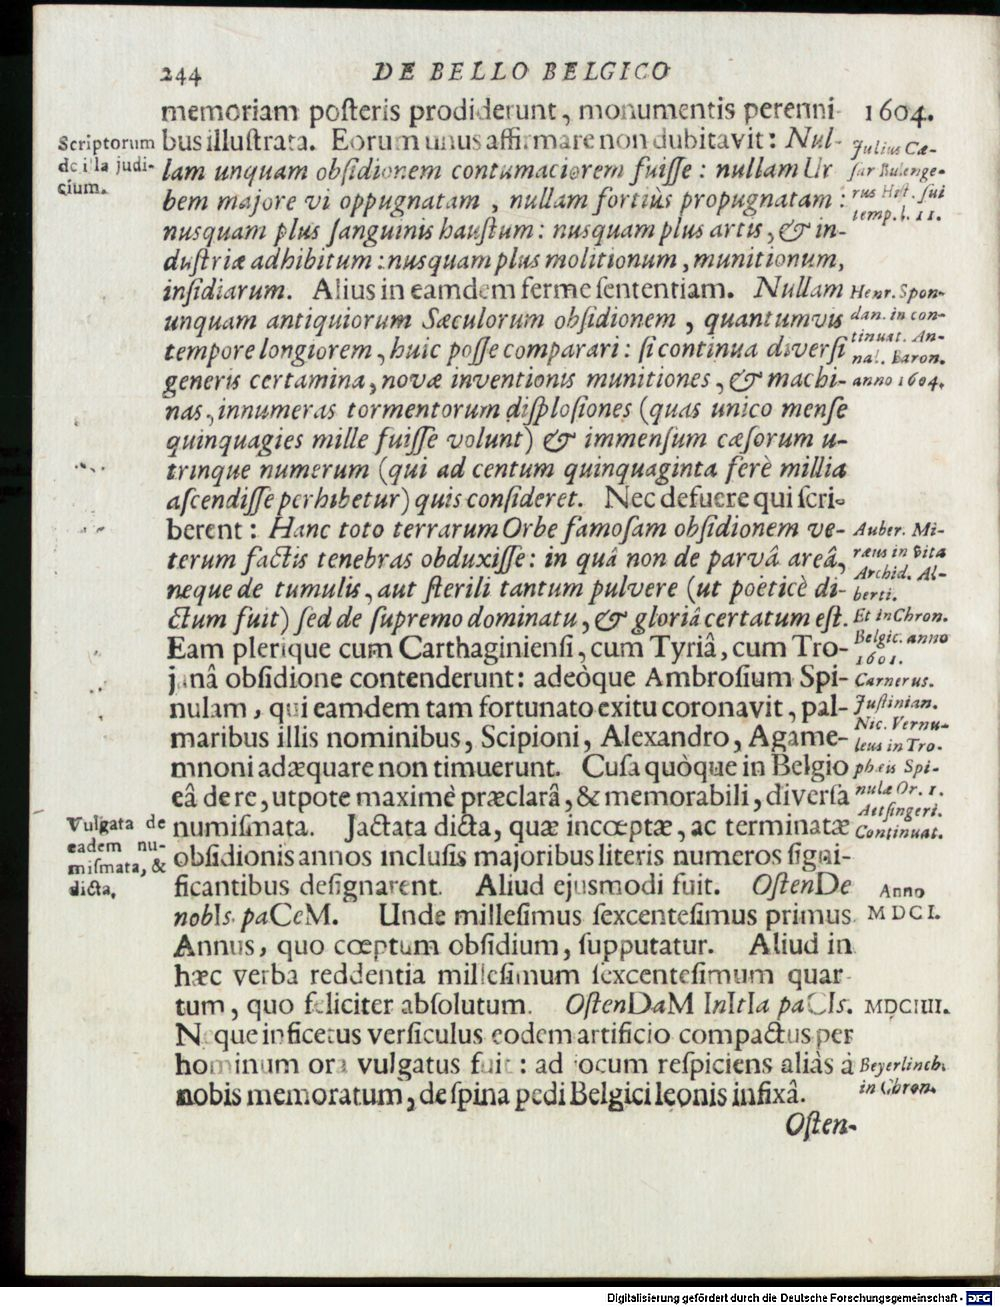 244 DE BELLO BELGICO
1604.
memoriam posteris prodiderunt, monumentis perenni-
bus illustrata. Eorum unus affirmare non dubitavit: Nul-
lam unquam obsidionem contumaciorem fuisse: nullam Ur
bem majore vi oppugnatam, nullam fortiùs propugnatam:
nusquam plus sanguinis haustum: nusquam plus artis, & in-
dustriæ adhibitum: nusquam plus molitionum, munitionum,
insidiarum. Alius in eamdem ferme sententiam. Nullam
unquam antiquiorum Sæculorum obsidionem, quantumvis
tempore longiorem, huic posse comparari: si continua diversi
generis certamina, novæ inventionis munitiones, & machi-
nas, innumeras tormentorum displosiones (quas unico mense
quinquagies mille fuisse volunt) & immensum cæsorum u-
trinque numerum (qui ad centum quinquaginta ferè millia
ascendisse perhibetur) quis consideret. Nec defuere qui scri-
berent: Hanc toto terrarum Orbe famosam obsidionem ve-
terum factis tenebras obduxisse: in quâ non de parvâ areâ,
neque de tumulis, aut sterili tantum pulvere (ut poëticè di-
ctum fuit) sed de supremo dominatu, & gloriâ certatum est.
Eam plerique cum Carthaginiensi, cum Tyriâ, cum Tro-
janâ obsidione contenderunt: adeòque Ambrosium Spi-
nulam, qui eamdem tam fortunato exitu coronavit, pal-
maribus illis nominibus, Scipioni, Alexandro, Agame-
mnoni adæquare non timuerunt. Cusa quòque in Belgio
eâ de re, utpote maximè præclarâ, & memorabili, diversa
numismata. Jactata dicta, quæ incœptæ, ac terminatæ
obsidionis annos inclusis majoribus literis numeros signi-
ficantibus designarent. Aliud ejusmodi fuit. OstenDe
nobIs paCeM. Unde millesimus sexcentesimus primus
Annus, quo cœptum obsidium, supputatur. Aliud in
hæc verba reddentia millesimum sexcentesimum quar-
tum, quo feliciter absolutum. OstenDaM InItIa paCIs.
Neque inficetus versiculus eodem artificio compactus per
hominum ora vulgatus fuit: ad jocum respiciens aliàs à
nobis memoratum, de spina pedi Belgici leonis infixâ.
Osten-
Scriptorum
de illa judi-
cium.
Vulgata de
eadem nu-
mismata, &
dicta.
Julius Cæ-
sar Bulenge-
rus Hist. sui
temp. l. 11.
Henr. Spon-
dan. in con-
tinuat. An-
nal. Baron.
anno 1604.
Auber. Mi-
ræus in Vita
Archid. Al-
berti.
Et in Chron.
Belgic. anno
1601.
Carnerus.
Justinian.
Nic. Vernu-
leus in Tro-
phæis Spi-
nulæ Or. 1.
Aetsingeri.
Continuat.
Anno
MDCI.
MDCIIII.
Beyerlinch.
in Chron.
Digitalisierung gefördert durch die Deutsche Forschungsgemeinschaft - DFG